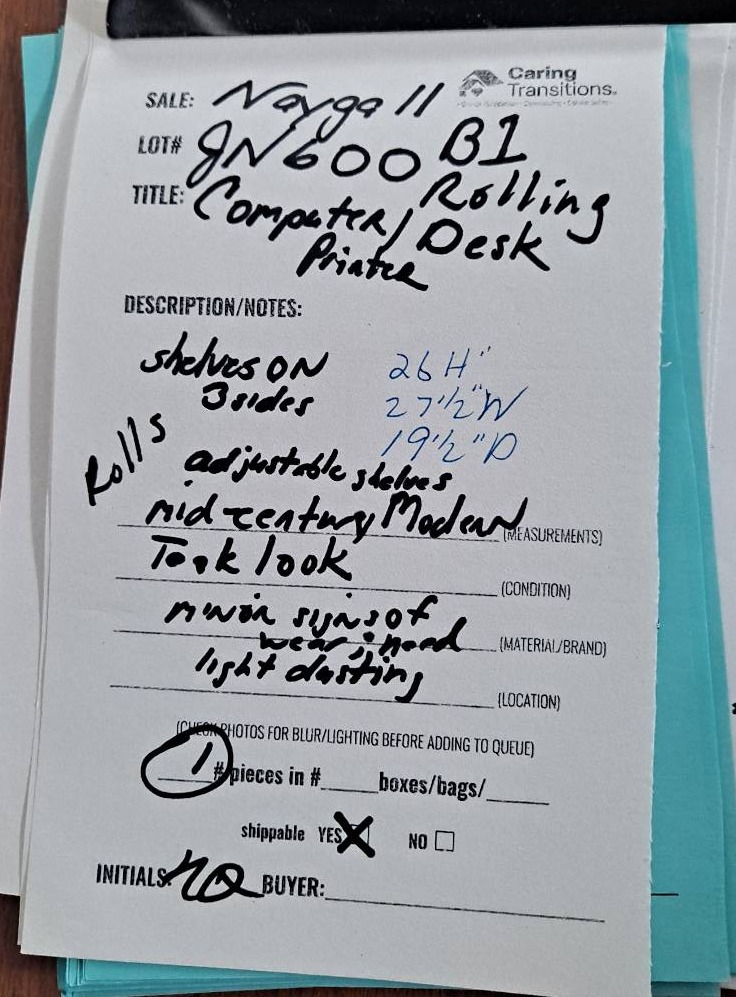 Caring
Transitions®
SALE: Nayga 11
LOT# JN600 B1
TITLE: Computer/ Rolling
Printer Desk
DESCRIPTION/NOTES:
shelves ON 26 H"
3 sides 27 1/2" W
19 1/2" D
Rolls adjustable shelves
mid-century Modern (MEASUREMENTS)
look (CONDITION)
minor signs of
wear; need (MATERIAL/BRAND)
light dusting (LOCATION)
(CHECK PHOTOS FOR BLUR/LIGHTING BEFORE ADDING TO QUEUE)
1 # pieces in #____ boxes/bags/____
shippable YES X NO
INITIALS: BUYER: